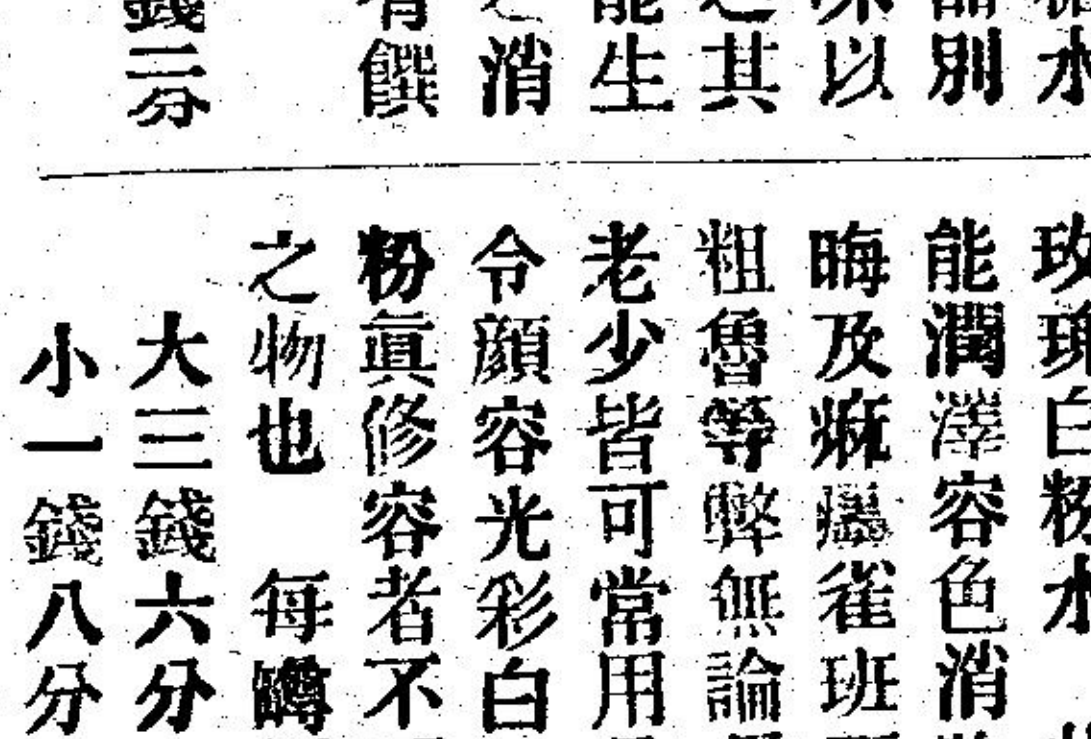 水
別
以
其
生
消
有饌
錢二分
玫瑰白粉水
能潤澤容色消
晦及痲癘雀班
粗魯等弊無論
老少皆可常用
令顏容光彩白
粉眞修容者不
之物也 每罇
大三錢六分
小一錢八分